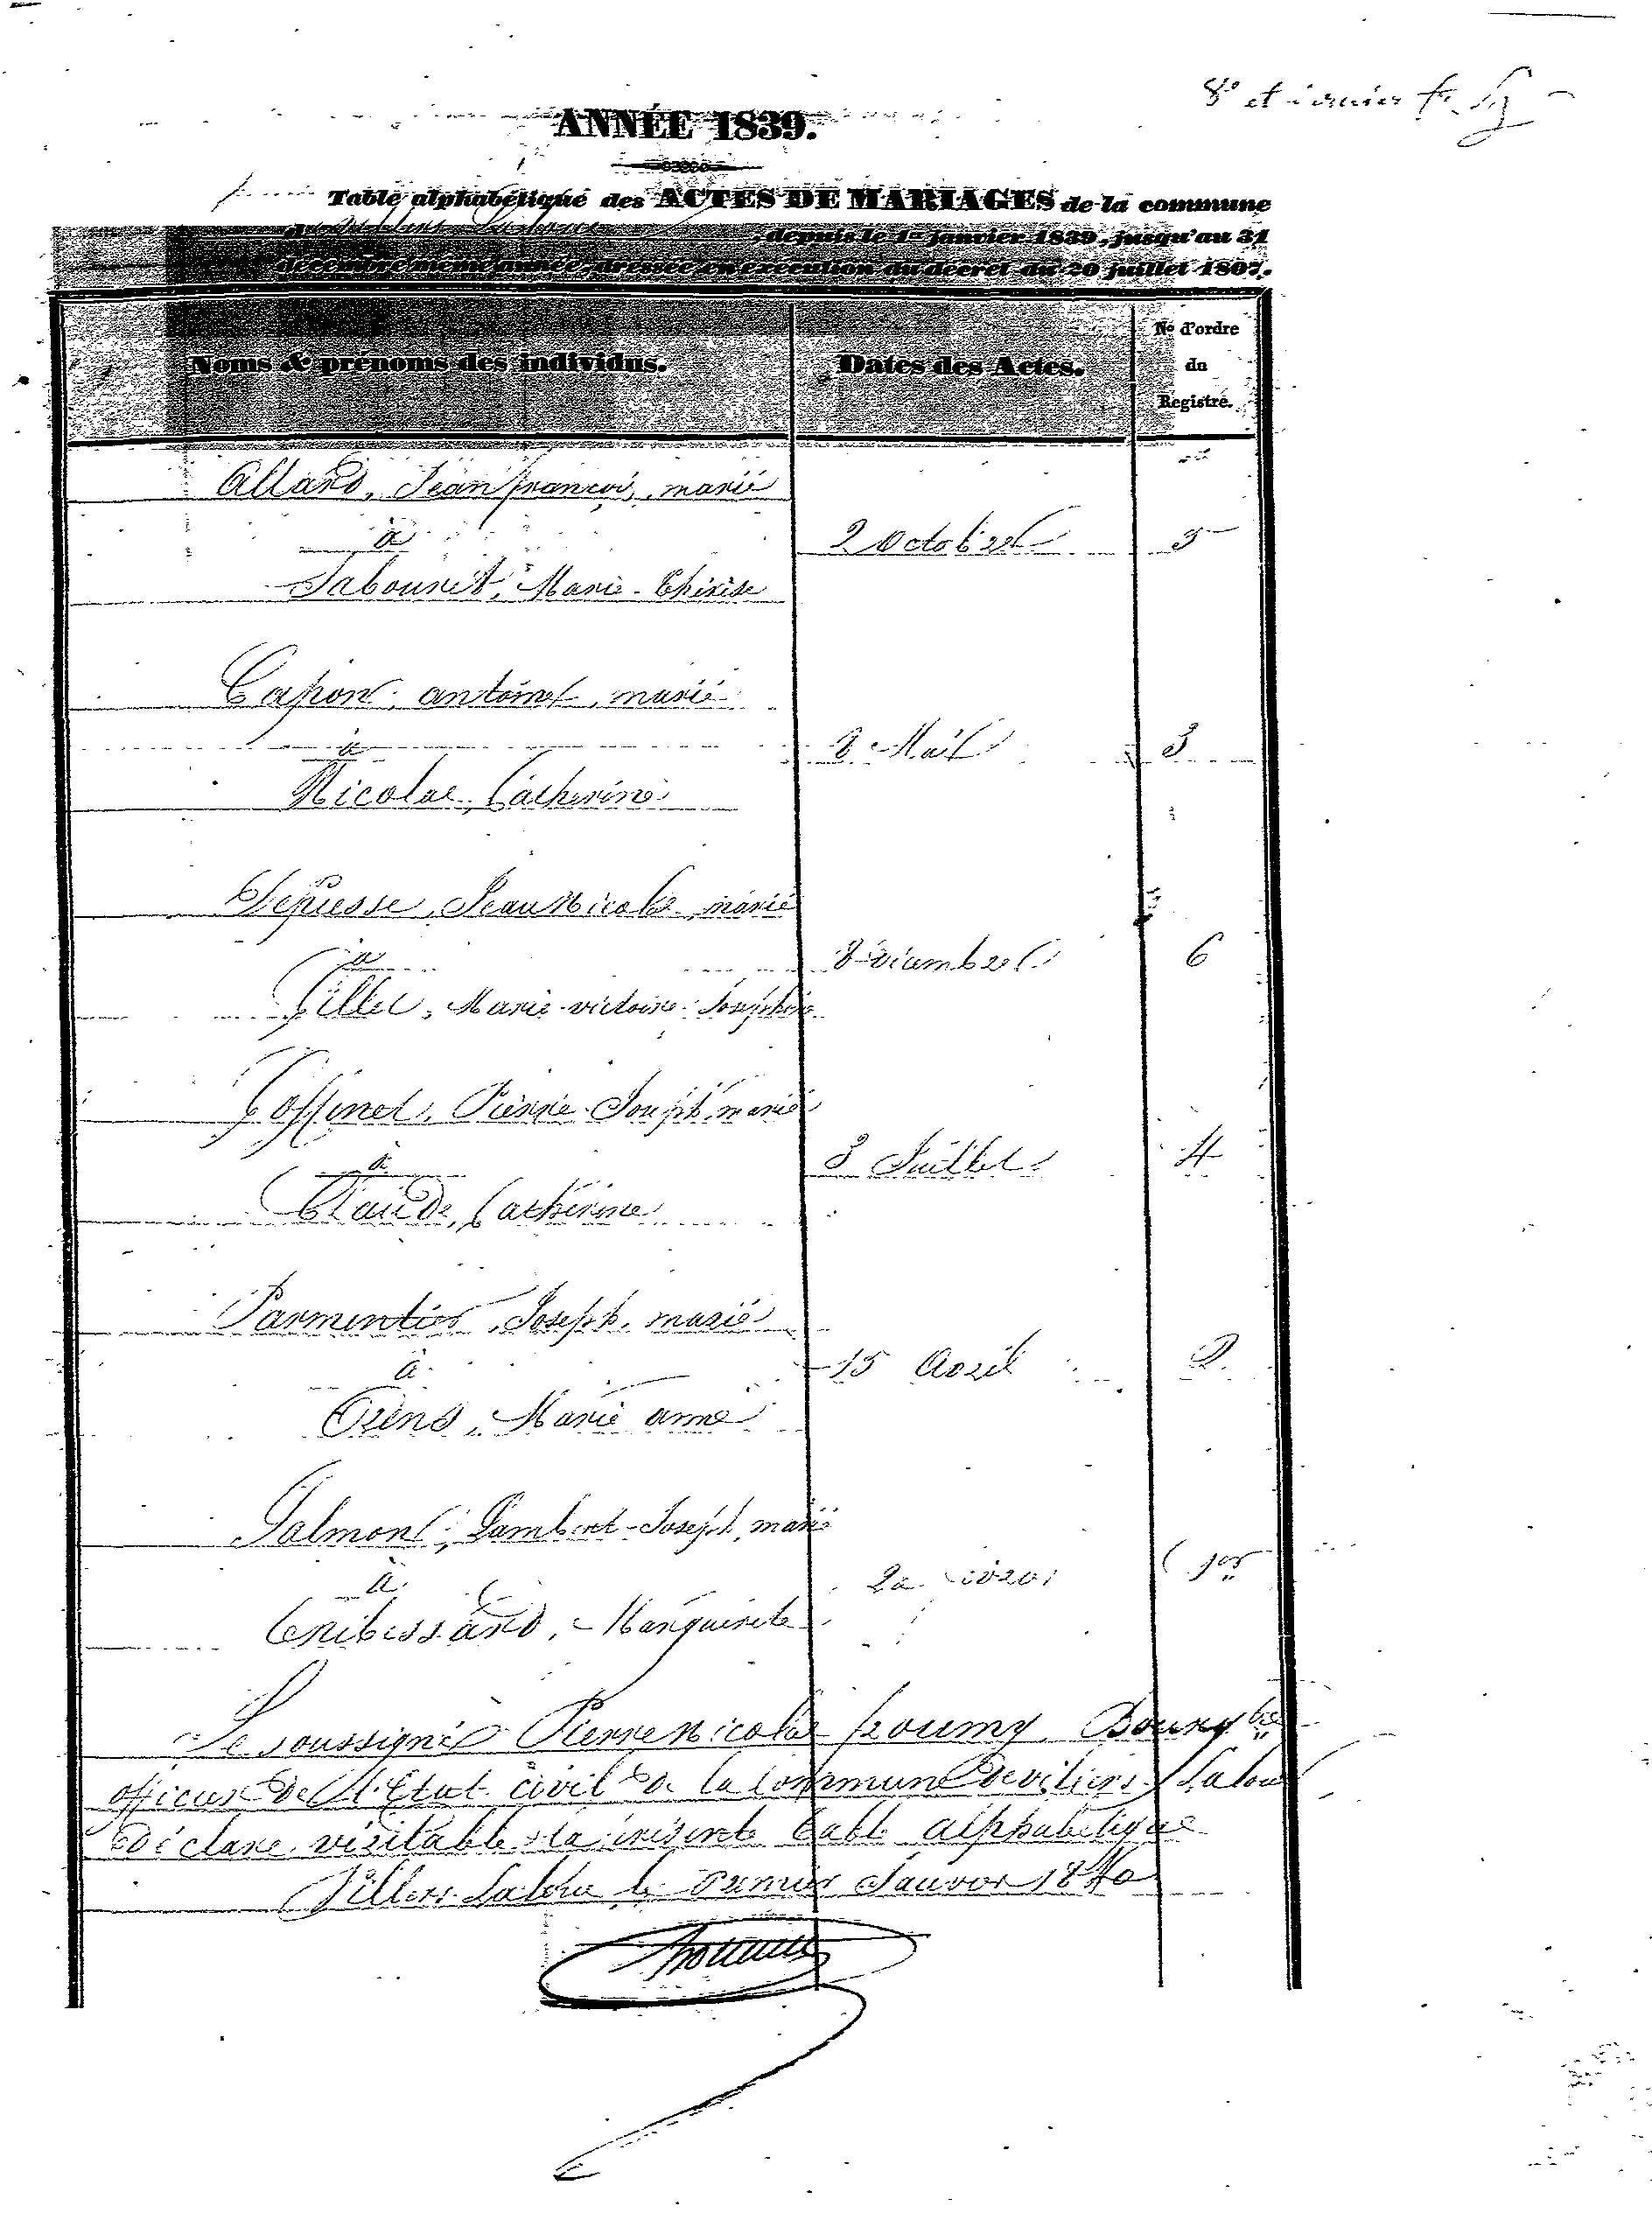 8e et dernier f.
ANNÉE 1839.
Table alphabétique des ACTES DE MARIAGES de la commune
depuis le 1er janvier 1839, jusqu'au 31
décembre même année, dressée en exécution du décret du 20 juillet 1807.
Noms & prénoms des individus. Dates des Actes. No d'ordre du Registre.
Allard, Jean françois, marié
à 2 Octobre 5
Marie-Thérèse
Capon, antoine, marié
à 8 Mai 3
Nicolas, Catherine
Jean Nicolas marié
à 6
Gillet, Marie-victoire-Josephine
Goffinet, Pierre-Joseph, marié
à 3 Juillet 4
Claude, Catherine
Parmentier, Joseph, marié
à 15 Avril 2
Marie anne
Salmon, Lambert-Joseph, marié
à 1er
Marguerite
Le soussigné Pierre Nicolas froumy, Bourgtre
officier de l'Etat civil de la Commune de villers la loue
Déclare véritable la présente table alphabétique
Villers la loue le premier Janvier 1840